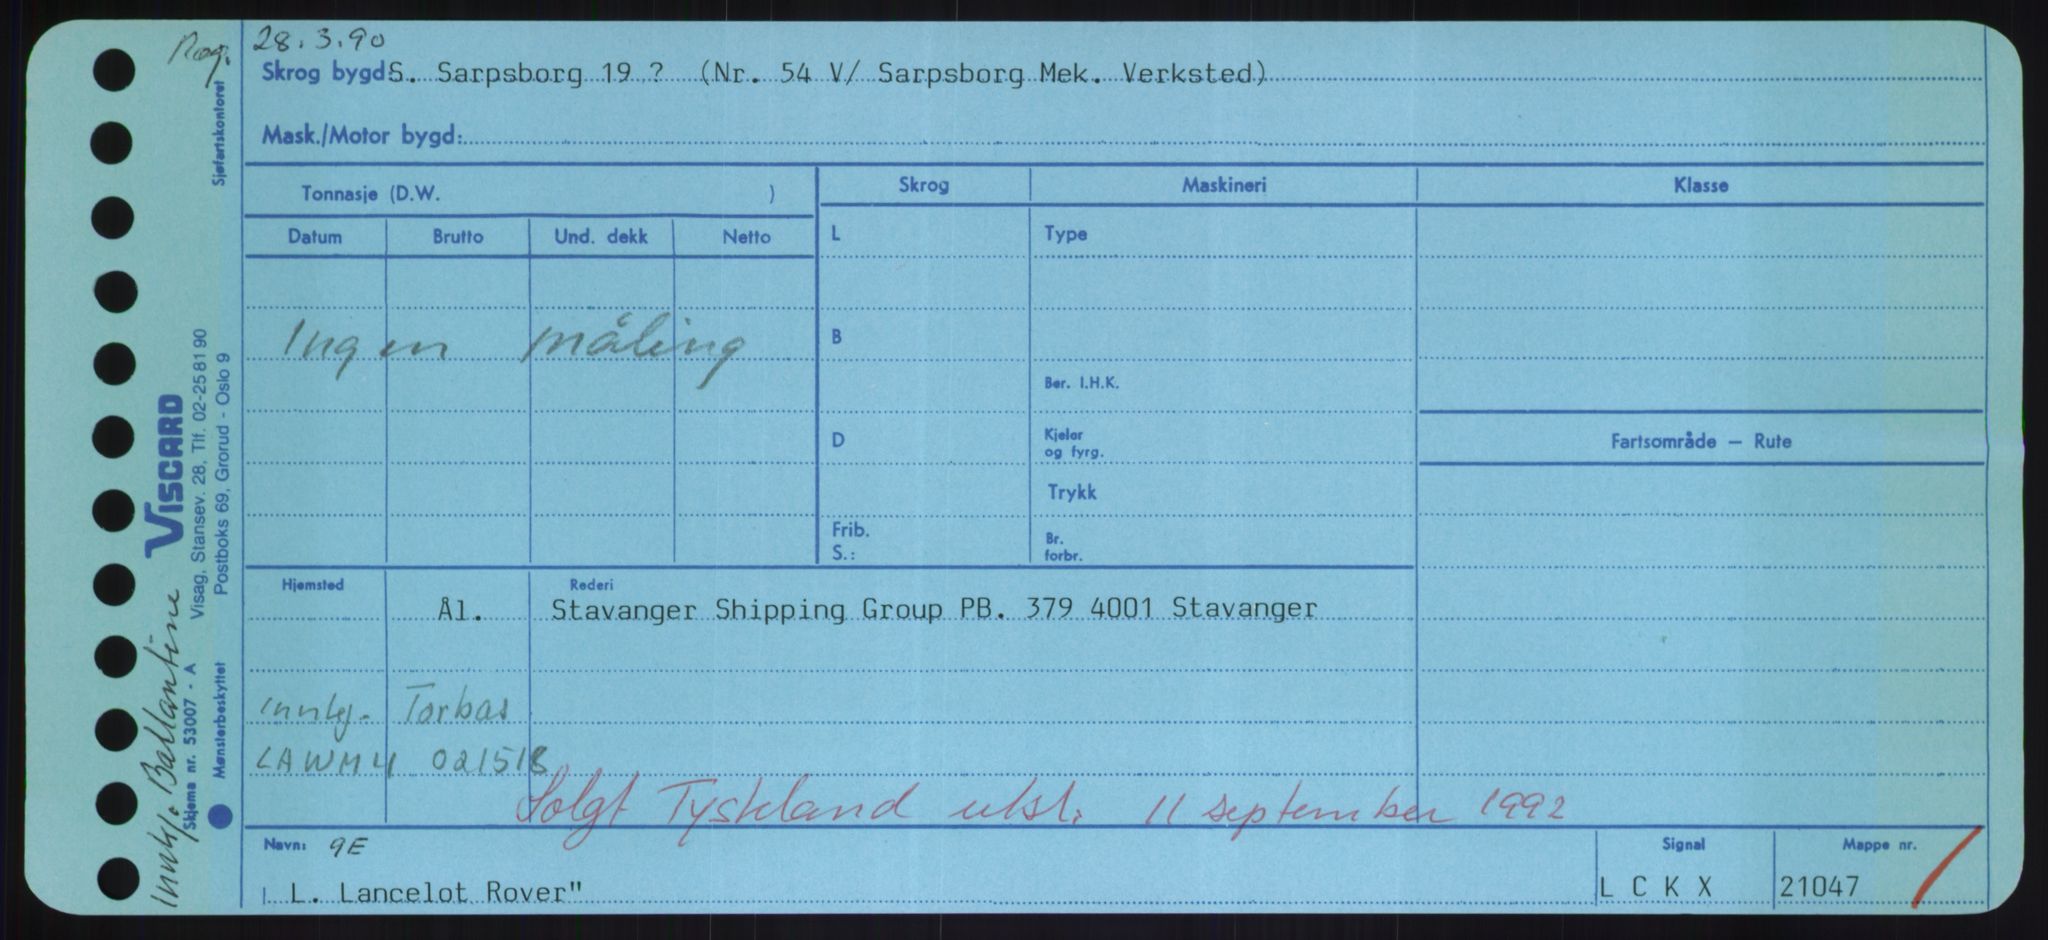 Reg. 28.3.90
Skrog bygd S. Sarpsborg 19 ? (Nr. 54 V/ Sarpsborg Mek. Verksted)
Mask./Motor bygd:
Tonnasje (D.W. )
Skrog Maskineri Klasse
Datum Brutto Und. dekk Netto
L Type
Ingen måling
B
Ber. I.H.K.
D Kjeler og fyrg.
Fartsområde — Rute
Trykk
Frib. S.:
Br. forbr.
Hjemsted Rederi
Ål. Stavanger Shipping Group PB. 379 4001 Stavanger
Torbas
LAWM4 021518
Solgt Tyskland utsl. 11 september 1992
Navn: 9E Signal Mappe nr.
L. Lancelot Rover" L C K X 21047
Sjøfartskontoret
VISCARD
Visag, Stansev. 28, Tlf. 02-25 81 90
Postboks 69, Grorud - Oslo 9
Skjema nr. 53007 - A
Mønsterbeskyttet
Ballantine